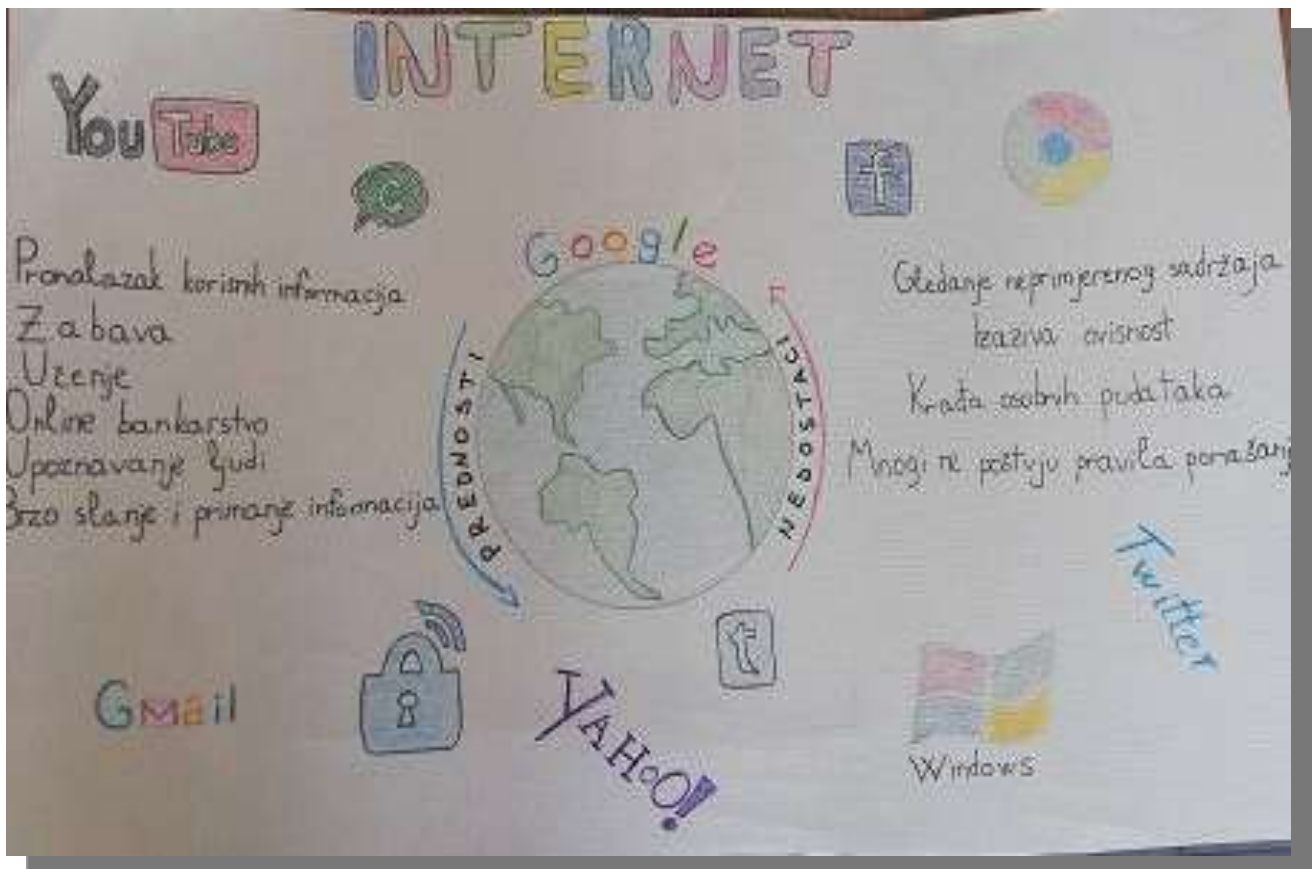 INTERNET
You Tube
f
Google
Pronalazak korisnih informacija
Zabava
Učenje
Online bankarstvo
Upoznavanje ljudi
Brzo slanje i primanje informacija
PREDNOSTI
NEDOSTACI
Gledanje neprimjerenog sadržaja
Izaziva ovisnost
Krađa osobnih podataka
Mnogi ne poštuju pravila ponašanj
Twitter
t
Gmail
YAHOO!
Windows